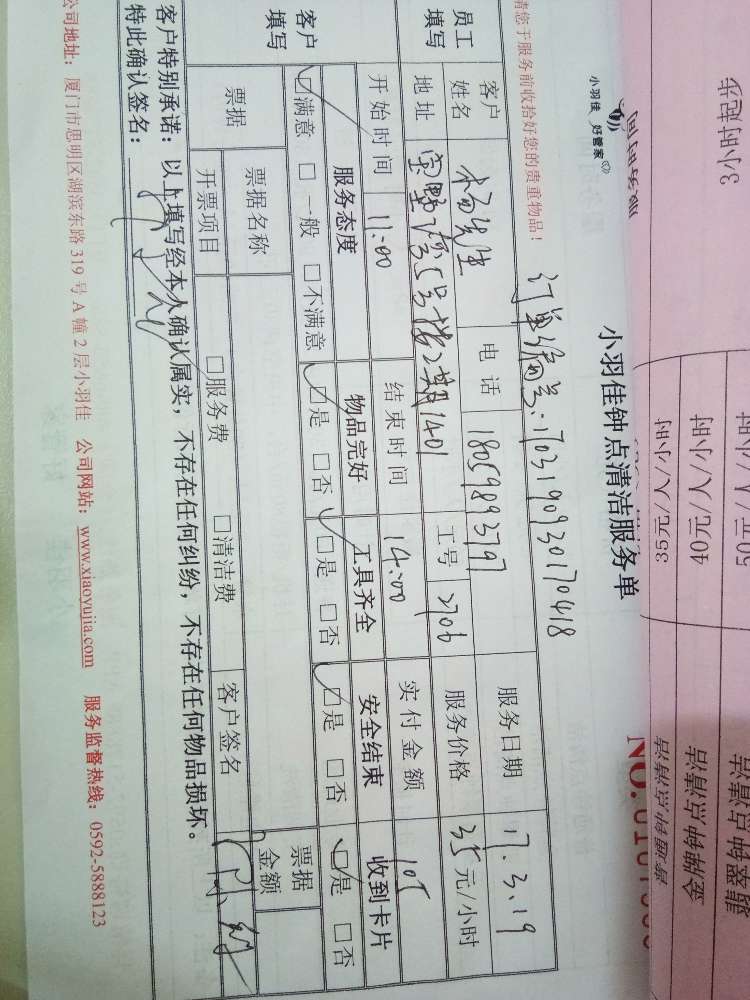 3小时起步
50元/人/小时
40元/人/小时
35元/人/小时
金牌钟点清洁
NO.
小羽佳 好管家
小羽佳钟点清洁服务单
请您于服务前收拾好您的贵重物品!
订单编号:1703190930170418
员工填写
客户姓名 杨先生 电话 18059893797 服务日期 17.3.19
地址 5号楼2梯1401 工号 2706 服务价格 35元/小时
开始时间 11:00 结束时间 14:00 实付金额 105
客户填写
服务态度 物品完好 工具齐全 安全结束 收到卡片
☑满意 □一般 □不满意 ☑是 □否 ☑是 □否 ☑是 □否 ☑是 □否
票据 票据名称 票据金额
开票项目 □服务费 □清洁费 客户签名
客户特别承诺:以上填写经本人确认属实,不存在任何纠纷,不存在任何物品损坏。
特此确认签名:
公司地址:厦门市思明区湖滨东路319号A幢2层小羽佳 公司网站:www.xiaoyujia.com 服务监督热线:0592-5888123